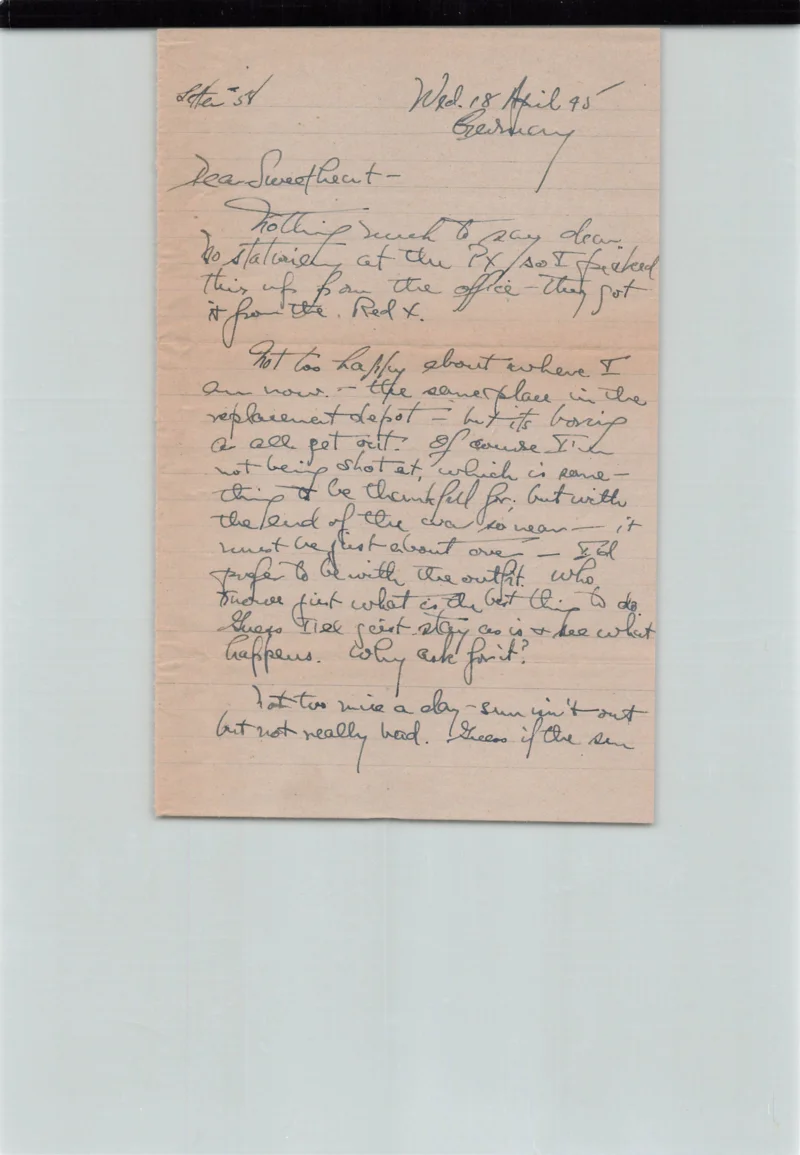 Letter #
Wed. 18 April 45
Germany
Dear Sweetheart -
Nothing much to say dear.
No stationery at the PX, so I picked
this up from the office - they got
it from the Red X.
Not too happy about where I
am now. - the same place in the
replacement depot - but its boring
as all get out. Of course I'm
not being shot at, which is some-
thing to be thankfull for, but with
the end of the war so near - it
must be just about over - I'd
prefer to be with the outfit. Who
knows just what is the best thing to do.
Guess I'll just stay as is & see what
happens. Why ask for it?
Not too nice a day - sun isn't out
but not really bad. Guess if the sun